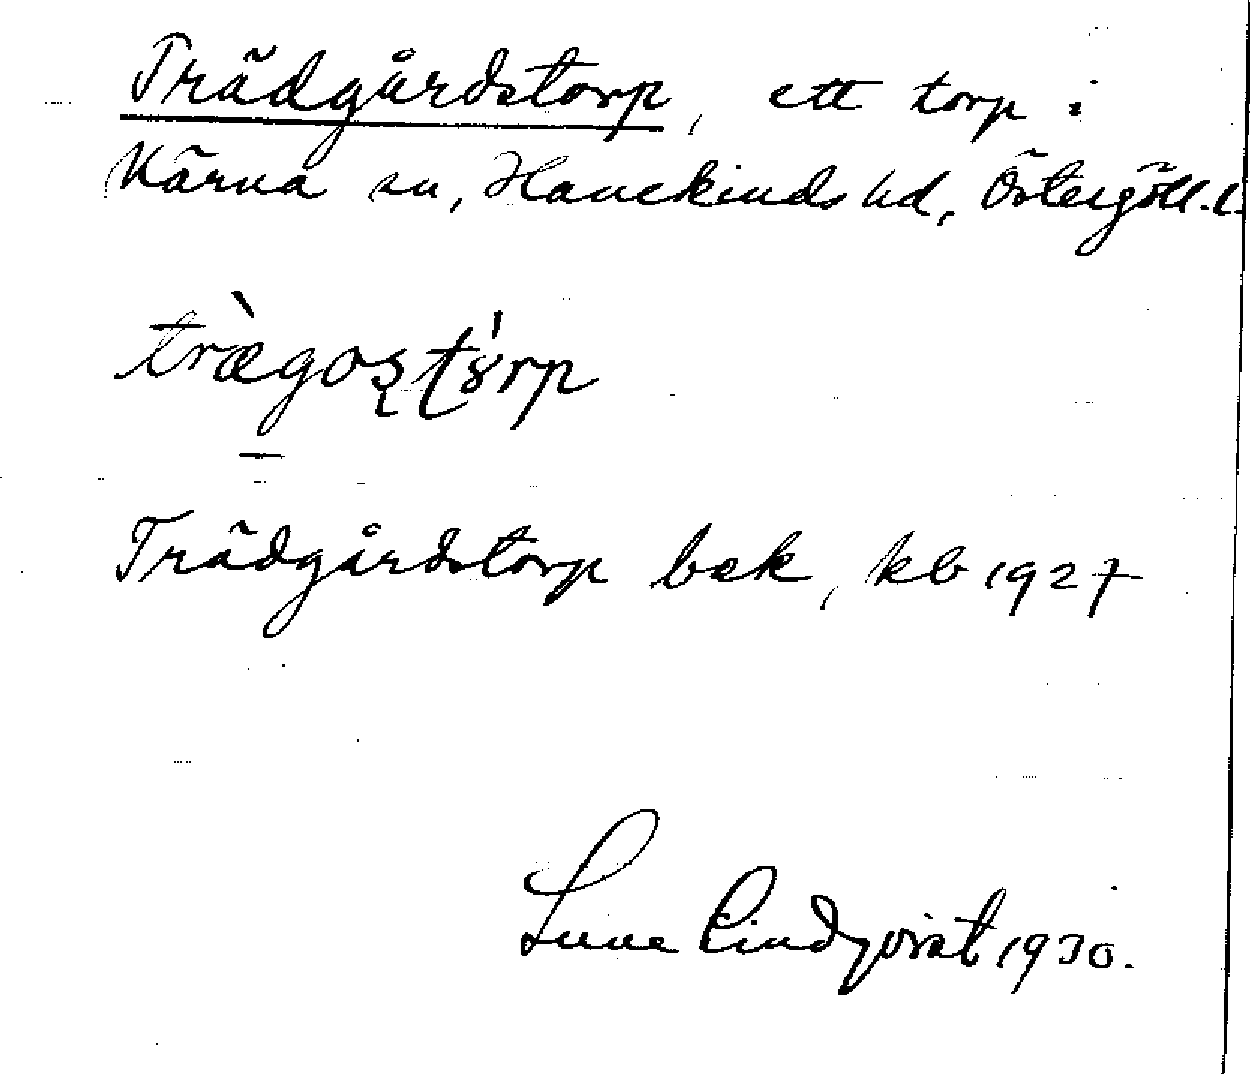 Trädgårdstorp, ett torp i
Kärna sn, Hanekinds hd, Östergötl. l.
trægostorp
Trädgårdstorp bek, kb 1927
Sune Lindqvist 1930.